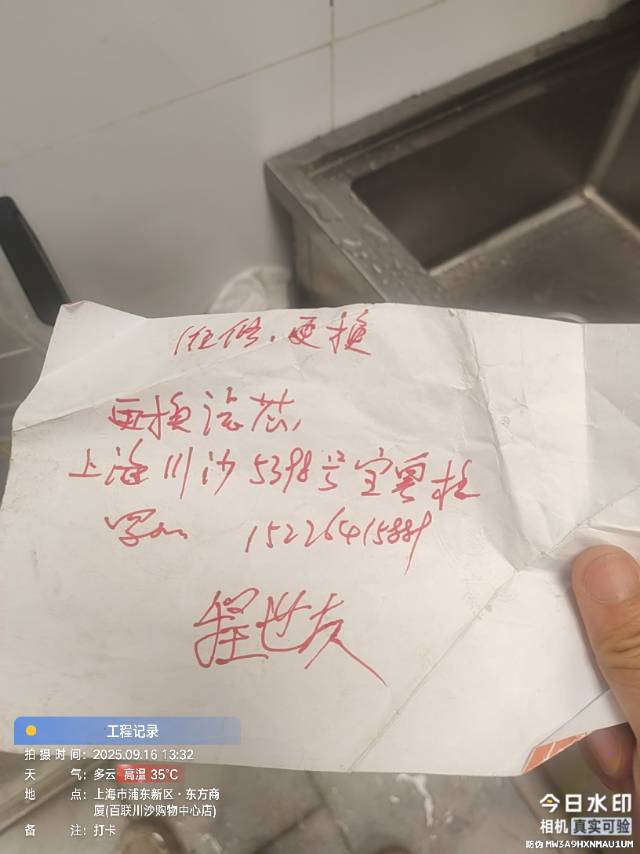 维修.更换
更换滤芯,
上海川沙5398号宝粤杜
15226415889
程世友
工程记录
拍摄时间：2025.09.16 13:32
天气：多云 高温 35℃
地点：上海市浦东新区·东方商
厦(百联川沙购物中心店)
备注：打卡
今日水印
相机 真实可验
防伪 MW3A9HXNMAU1UM